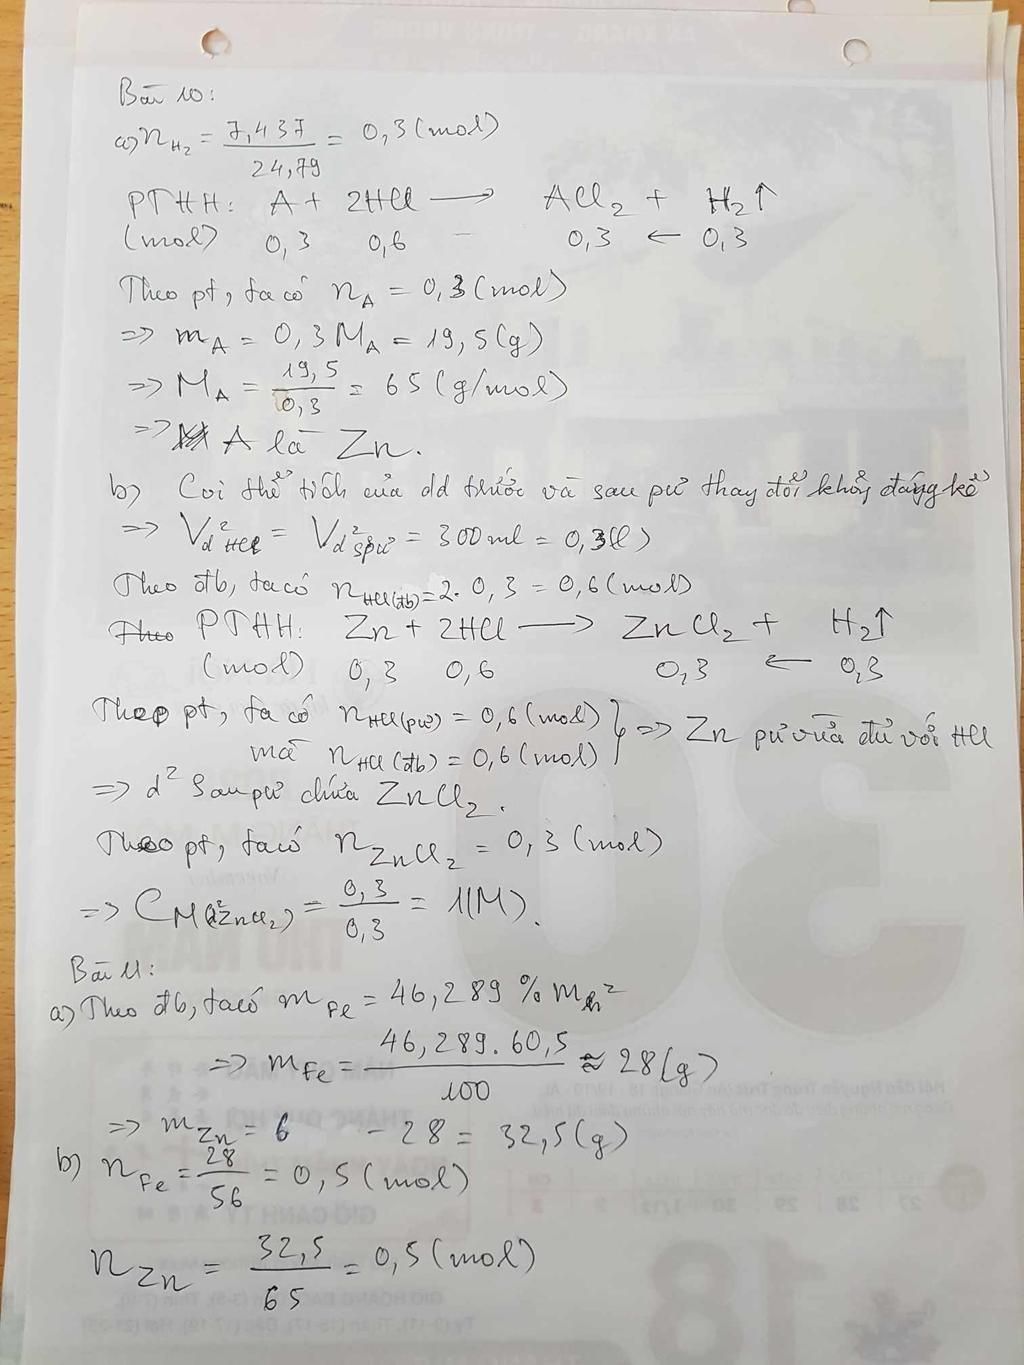 Bài 10:
a) n H₂ = 7,437 / 24,79 = 0,3 (mol)
PTHH: A + 2HCl → ACl₂ + H₂↑
(mol) 0,3 0,6 – 0,3 ← 0,3
Theo pt, ta có n A = 0,3 (mol)
=> m A = 0,3 M A = 19,5 (g)
=> M A = 19,5 / 0,3 = 65 (g/mol)
=> A là Zn.
b) Coi thể tích của dd trước và sau pư thay đổi không đáng kể
=> V d² HCl = V d² spư = 300 ml = 0,3 (l)
Theo đb, ta có n HCl (đb) = 2. 0,3 = 0,6 (mol)
Theo PTHH: Zn + 2HCl → ZnCl₂ + H₂↑
(mol) 0,3 0,6 0,3 ← 0,3
Theo pt, ta có n HCl (pư) = 0,6 (mol) } => Zn pư vừa đủ với HCl
mà n HCl (đb) = 0,6 (mol)
=> d² sau pư chứa ZnCl₂.
Theo pt, ta có n ZnCl₂ = 0,3 (mol)
=> C M (d² ZnCl₂) = 0,3 / 0,3 = 1 (M).
Bài 11:
a) Theo đb, ta có m Fe = 46,289 % m h²
=> m Fe = 46,289 . 60,5 / 100 ≈ 28 (g)
=> m Zn = 6 – 28 = 32,5 (g)
b) n Fe = 28 / 56 = 0,5 (mol)
n Zn = 32,5 / 65 = 0,5 (mol)